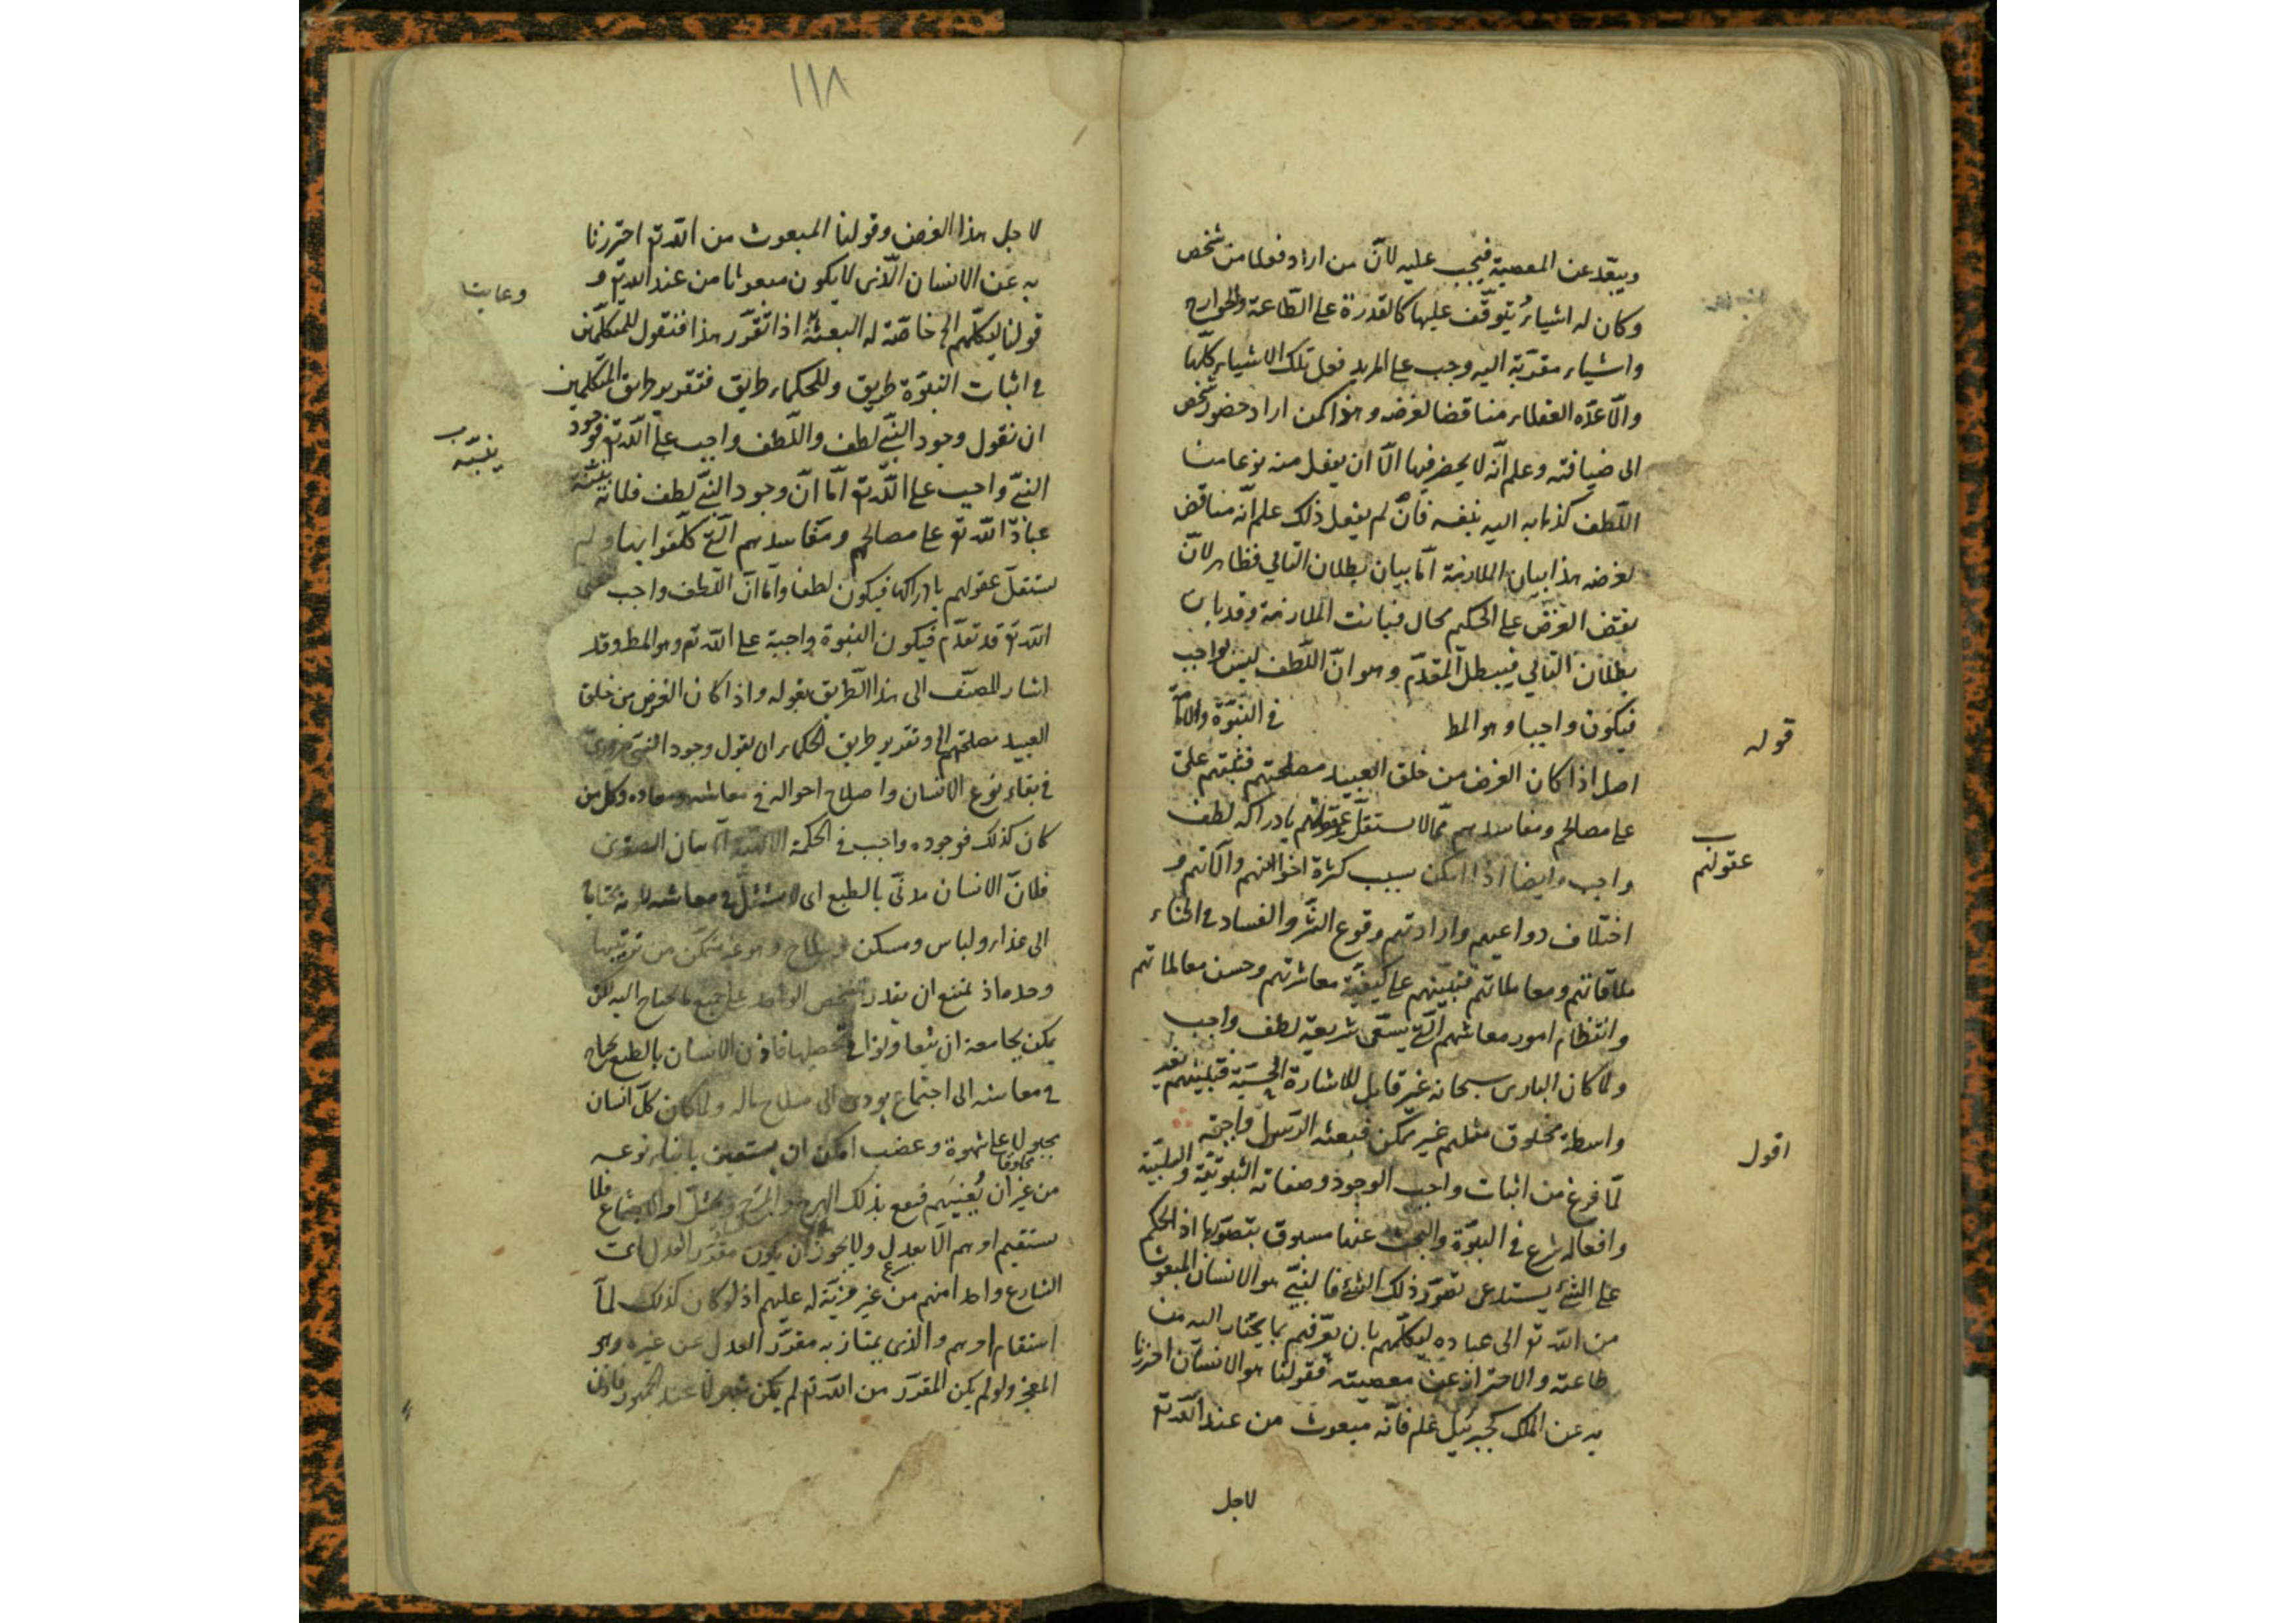 ويبعّد عن المعصية فيجب عليه لانّ من اراد فعلا من شخص
وكان له اشياء يتوقّف عليها كالقدرة على الطاعة والجوارح
واشياء مقرّبة اليه وجب على المريد فعل تلك الاشياء كلّها
والّا عدّه العقلاء مناقضا لغرضه وهذا كمن اراد حضور شخص
الى ضيافته وعلم انّه لا يحضر فيها الّا ان يفعل منه نوعا من
اللّطف كذهابه اليه بنفسه فانّ لم يفعل ذلك علم انّه مناقض
لغرضه هذا بيان الملازمة امّا بيان بطلان التالي فظاهر لانّ
نقض الغرض على الحكيم محال فبانت الملازمة وقد بان
بطلان التالي فيبطل المقدّم وهو انّ اللّطف ليس بواجب
فيكون واجبا وهو المط في النبوّة والامامة
قوله
اصل اذا كان الغرض من خلق العبيد مصلحتهم فتنبيههم على
على مصالح ومفاسدهم ممّا لا يستقلّ عقولهم بادراكه لطف
عقولهم
واجب وايضا اذا امكن بسبب كثرة اخوانهم وآلاتهم و
اختلاف دواعيهم وارادتهم وقوع الشرّ والفساد في اثناء
ملاقاتهم ومعاملاتهم فتنبيههم على كيفيّة معاشرتهم وحسن معاملاتهم
وانتظام امور معاشهم الّتي يسمّى شريعة لطف واجب
ولمّا كان البارى سبحانه غير قابل للاشارة الحسيّة فتنبيههم بغير
واسطة مخلوق مثلهم غير ممكن فبعثه الرسول واجبة
اقول
لمّا فرغ من اثبات واجب الوجود وصفاته الثبوتيّة والسلبيّة
وافعاله شرع في النبوّة والبحث عنها مسبوق بتصوّرها اذ الحكم
على الشئ يستدعى تصوّر ذلك الشئ فالنبيّ هو الانسان المبعوث
من اللّه تع الى عباده ليكلّمهم بان يعرّفهم بما يحتاج اليه من
طاعته والاحتراز عن معصيته فقولنا هو الانسان احترزنا
به عن الملك كجبرئيل علم فانّه مبعوث من عند اللّه تع
لاجل
١١٨
لاجل هذا الغرض وقولنا المبعوث من اللّه تع احترزنا
به عن الانسان الّذى لا يكون مبعوثا من عند اللّه تع و
قولنا ليكلّمهم الخ خاصّة له البعثة اذا تقرّر هذا فنقول للمتكلّمين
في اثبات النبوّة طريق وللحكماء طريق فتقرير طريق المتكلّمين
ان نقول وجود النبيّ لطف واللّطف واجب على اللّه تع فوجود
النبيّ واجب على اللّه تع امّا انّ وجود النبيّ لطف فلانّه ينبّه
عباد اللّه تع على مصالحهم ومفاسدهم الّتي كلّفوا بها ولم
يستقلّ عقولهم بادراكها فيكون لطفا وامّا انّ اللّطف واجب على
اللّه تع قد تقدّم فيكون النبوة واجبة على اللّه تع وهو المط وقد
اشار المصنّف الى هذا الطريق بقوله واذا كان الغرض من خلق
العبيد مصلحتهم الخ وتقرير طريق الحكماء ان يقول وجود النبي ضروريّ
في بقاء نوع الانسان واصلاح احواله في معاشه ومعاده وكل من
كان كذلك فوجوده واجب في الحكمة الالهية امّا بيان الصغرى
فلانّ الانسان مدنّى بالطبع اى لا يستقلّ في معاشه لانه يحتاج
الى غذاء ولباس ومسكن وسلاح وهو غير متمكّن من ترتيبها
وحده اذ يمتنع ان يقدر الشخص الواحد على جميع ما يحتاج اليه لكن
يمكن لجامعة ان يتعاونوا في تحصيلها فاذن الانسان بالطبع محتاج
في معاشه الى اجتماع يودى الى صلاح حاله ولمّا كان كلّ انسان
مجبولا على شهوة وغضب امكن ان يستعين بابناء نوعه
من غير ان يعينهم فيقع بذلك الهرج والمرج ويختلّ امر الاجتماع فلا
يستقيم امرهم الّا بعدل ولا يجوز ان يكون مقرّر العدل
الشارع واحدا منهم من غير مزيّة له عليهم اذ لو كان كذلك لما
استقام امرهم والذى يمتاز به مقرّر العدل عن غيره وهو
المعجز ولو لم يكن المقرّر من اللّه تع لم يكن مقبولا عند الجمهور فاذن